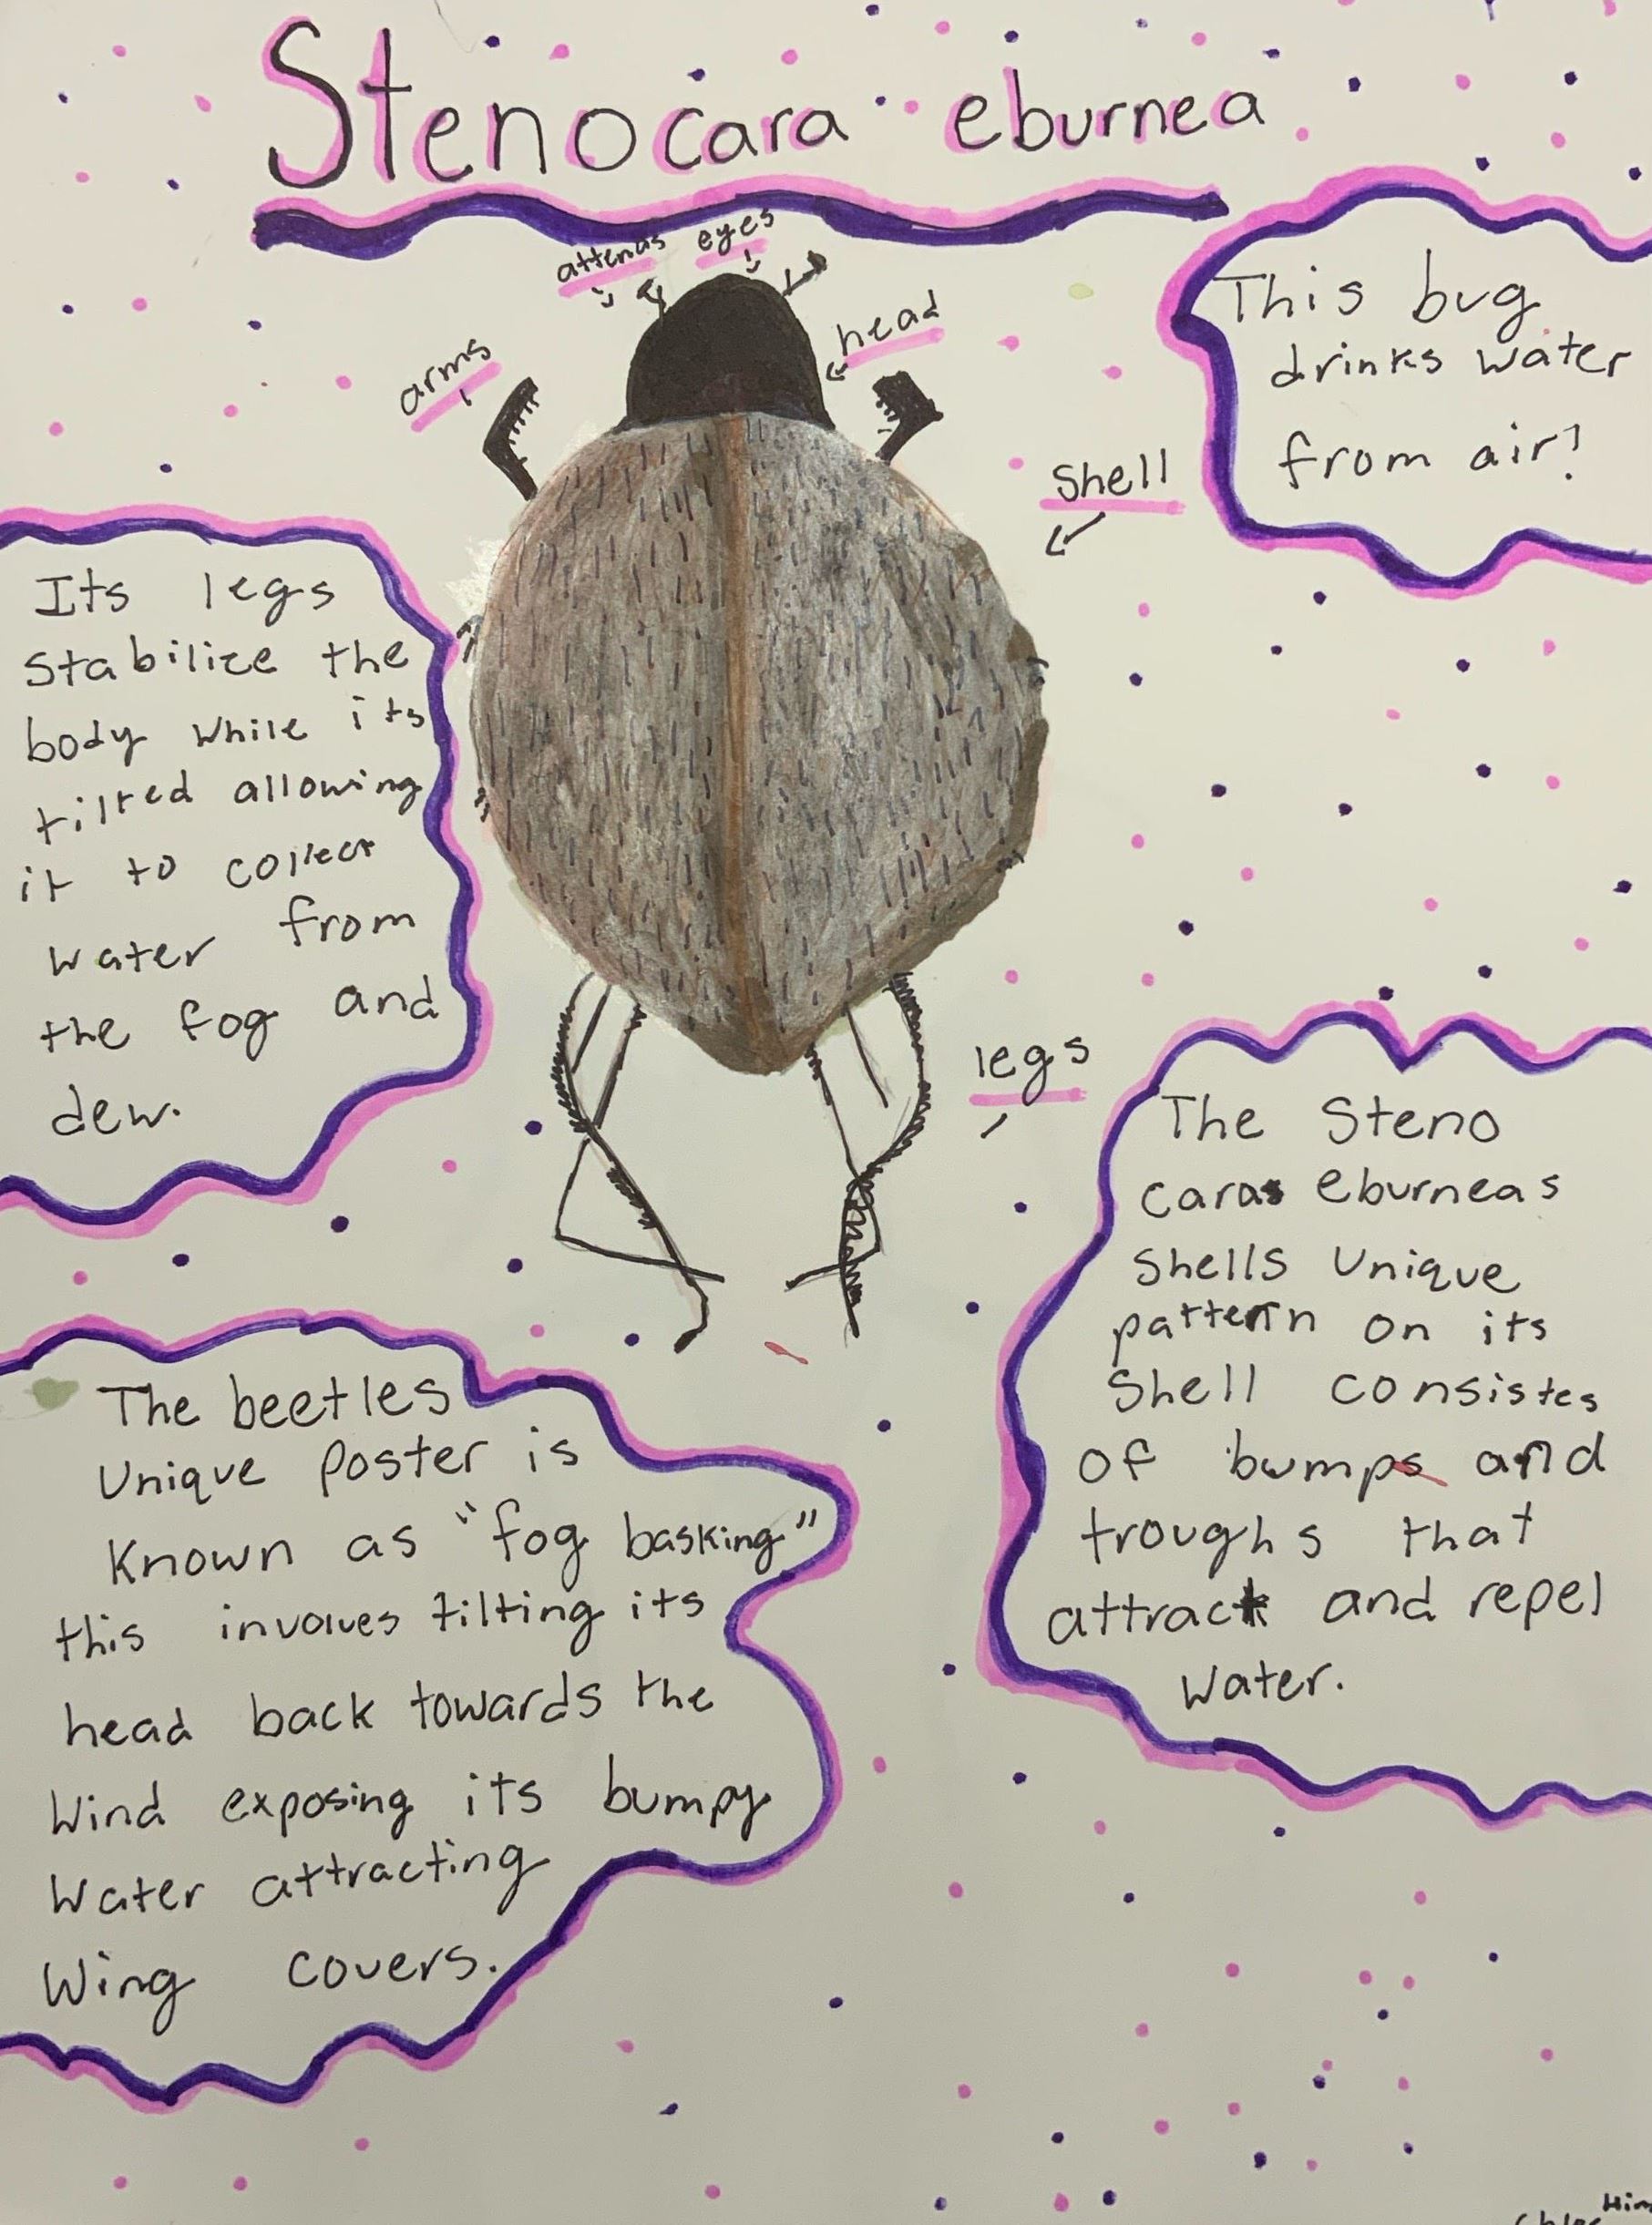 Stenocara eburnea
attenas
eyes
head
arms
Shell
This bug
drinks water
from air!
Its legs
stabilize the
body while its
tilted allowing
it to collect
water from
the fog and
dew.
legs
The Steno
caras eburneas
shells unique
pattern on its
Shell consistes
of bumps and
troughs that
attract and repel
water.
The beetles
Unique poster is
known as "fog basking"
this involves tilting its
head back towards the
Wind exposing its bumpy
Water attracting
Wing covers.
Him
Chloe